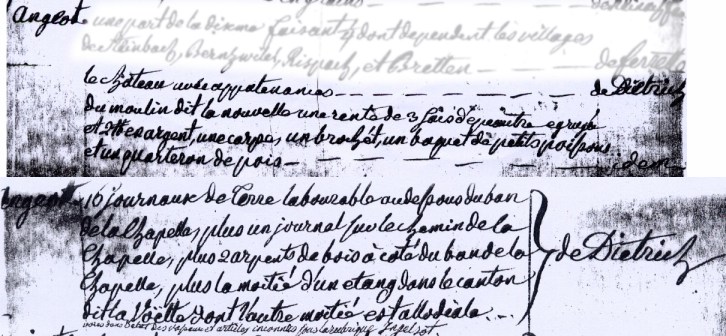 Angeot
une part de la dixme faisant dont dependent les villages
de Steinbach, Bernzwiler, et Bretten — de ferrette
le château avec appatenances — de Dietrich
du moulin dit la nouvelle une rente de 3 sacs d'épeautre egrugé
et argent, une carpe, un brochét, un baquet de petits poissons
et un quarteron de pois — idem
Angeot 16 journaux de Terre labourable au dessous du ban
de la Chapelle, plus un journal sur le chemin de la
Chapelle, plus 2 arpents de bois à coté du ban de la } de Dietrich
Chapelle, plus la moitié d'un etang dans le canton
dit la Voëlle dont l'autre moitié est allodiale
dans et articles inconnus sous la rubrique